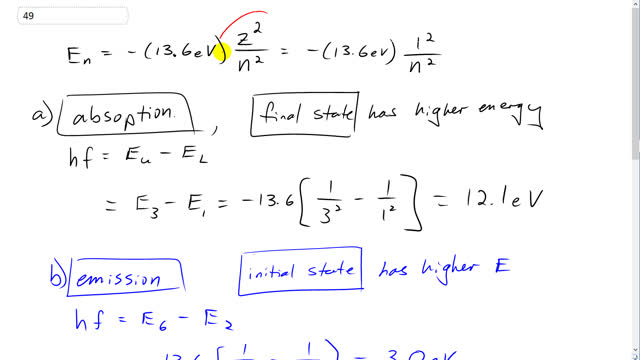 49
E_n = -(13.6eV) Z²/n² = -(13.6eV) 1²/n²
a) absoption, final state has higher energy
hf = E_u - E_L
= E_3 - E_1 = -13.6 [1/3² - 1/1²] = 12.1eV
b) emission initial state has higher E
hf = E_6 - E_2